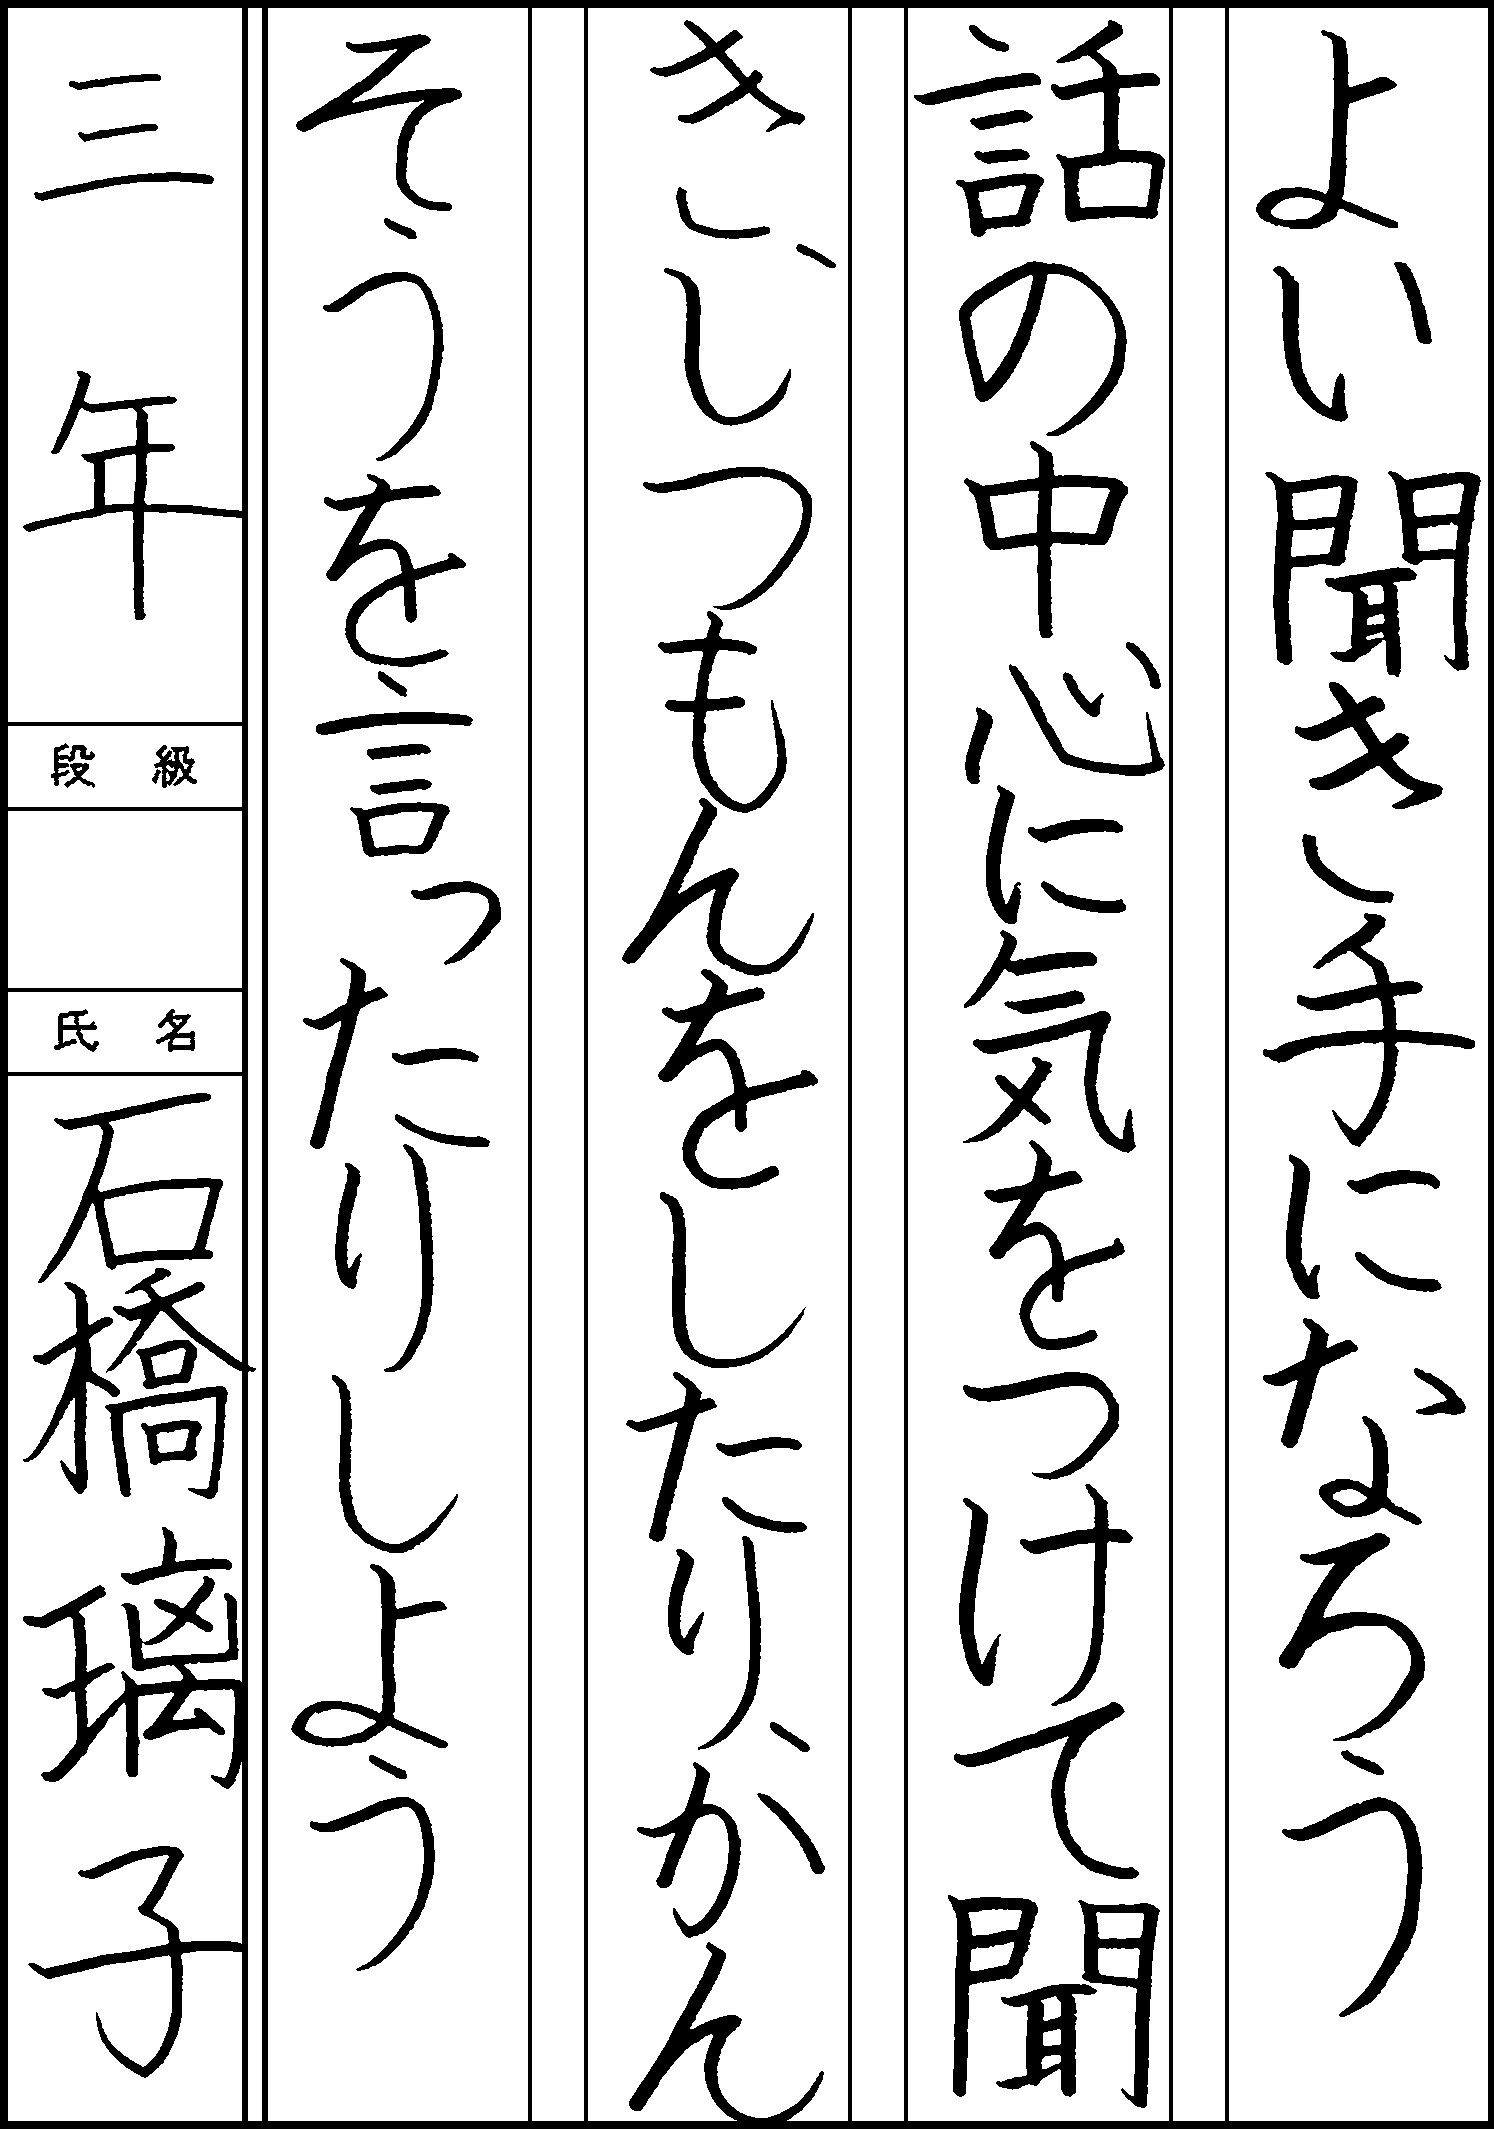 よい聞き手になろう
話の中心に気をつけて聞
き、しつもんをしたり、かん
そうを言ったりしよう
三年
段級
氏名
石橋璃子